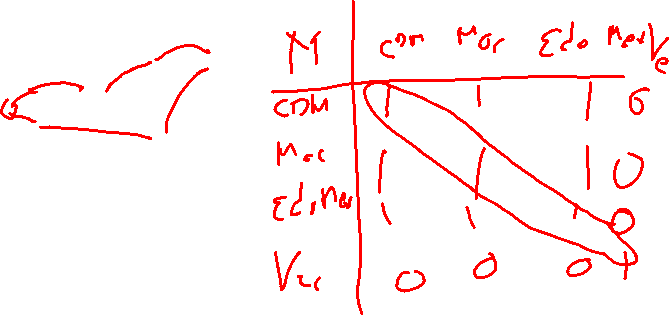 M CDM Mor Edo Mex Ve
CDM 1 1 1 0
Mor 1 1 1 0
Edo Mex 1 1 1 0
Ver 0 0 0 1